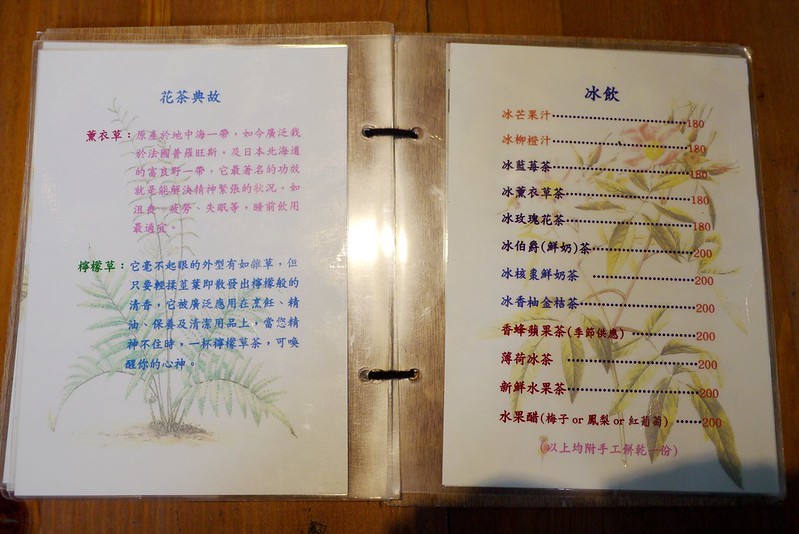 花茶典故
薰衣草：原產於地中海一帶，如今廣泛栽
於法國普羅旺斯。及日本北海道
的富良野一帶，它最著名的功效
就是能解決精神緊張的狀況，如
沮喪、疲勞、失眠等，睡前飲用
最適宜。
檸檬草：它毫不起眼的外型有如雜草，但
只要輕揉莖葉即散發出檸檬般的
清香，它被廣泛應用在烹飪、精
油、保養及清潔用品上，當您精
神不住時，一杯檸檬草茶，可喚
醒妳的心神。
冰飲
冰芒果汁 180
冰柳橙汁 180
冰藍莓茶 180
冰薰衣草茶 180
冰玫瑰花茶 180
冰伯爵(鮮奶)茶 200
冰核棗鮮奶茶 200
冰香柚金桔茶 200
香蜂蘋果茶(季節供應) 200
薄荷冰茶 200
新鮮水果茶 200
水果醋(梅子or鳳梨or紅葡萄) 200
(以上均附手工餅乾一份)